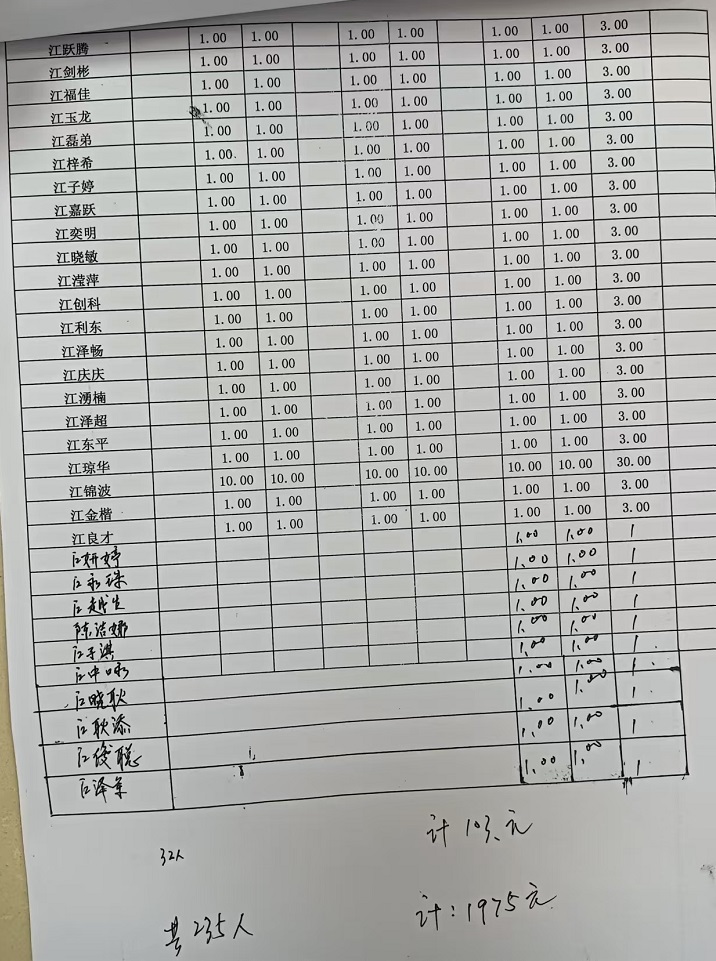 江跃腾 1.00 1.00 1.00 1.00 1.00 1.00 3.00
江剑彬 1.00 1.00 1.00 1.00 1.00 1.00 3.00
江福佳 1.00 1.00 1.00 1.00 1.00 1.00 3.00
江玉龙 1.00 1.00 1.00 1.00 1.00 1.00 3.00
江磊弟 1.00 1.00 1.00 1.00 1.00 1.00 3.00
江梓希 1.00 1.00 1.00 1.00 1.00 1.00 3.00
江子婷 1.00 1.00 1.00 1.00 1.00 1.00 3.00
江嘉跃 1.00 1.00 1.00 1.00 1.00 1.00 3.00
江奕明 1.00 1.00 1.00 1.00 1.00 1.00 3.00
江晓敏 1.00 1.00 1.00 1.00 1.00 1.00 3.00
江滢萍 1.00 1.00 1.00 1.00 1.00 1.00 3.00
江创科 1.00 1.00 1.00 1.00 1.00 1.00 3.00
江利东 1.00 1.00 1.00 1.00 1.00 1.00 3.00
江泽畅 1.00 1.00 1.00 1.00 1.00 1.00 3.00
江庆庆 1.00 1.00 1.00 1.00 1.00 1.00 3.00
江湧楠 1.00 1.00 1.00 1.00 1.00 1.00 3.00
江泽超 1.00 1.00 1.00 1.00 1.00 1.00 3.00
江东平 1.00 1.00 1.00 1.00 1.00 1.00 3.00
江琼华 1.00 1.00 1.00 1.00 1.00 1.00 3.00
江锦波 10.00 10.00 10.00 10.00 10.00 10.00 30.00
江金楷 1.00 1.00 1.00 1.00 1.00 1.00 3.00
江良才 1.00 1.00 1.00 1.00 1.00 1.00 3.00
江妍婷 1.00 1.00 1
江永珠 1.00 1.00 1
江越生 1.00 1.00 1
陈洁娜 1.00 1.00 1
江子淇 1.00 1.00 1
江中咏 1.00 1.00 1
江晓耿 1.00 1.00 1
江耿添 1.00 1.00 1
江俊聪 1.00 1.00 1
江泽 1.00 1.00 1
计103元
32人
共235人 计:1975元